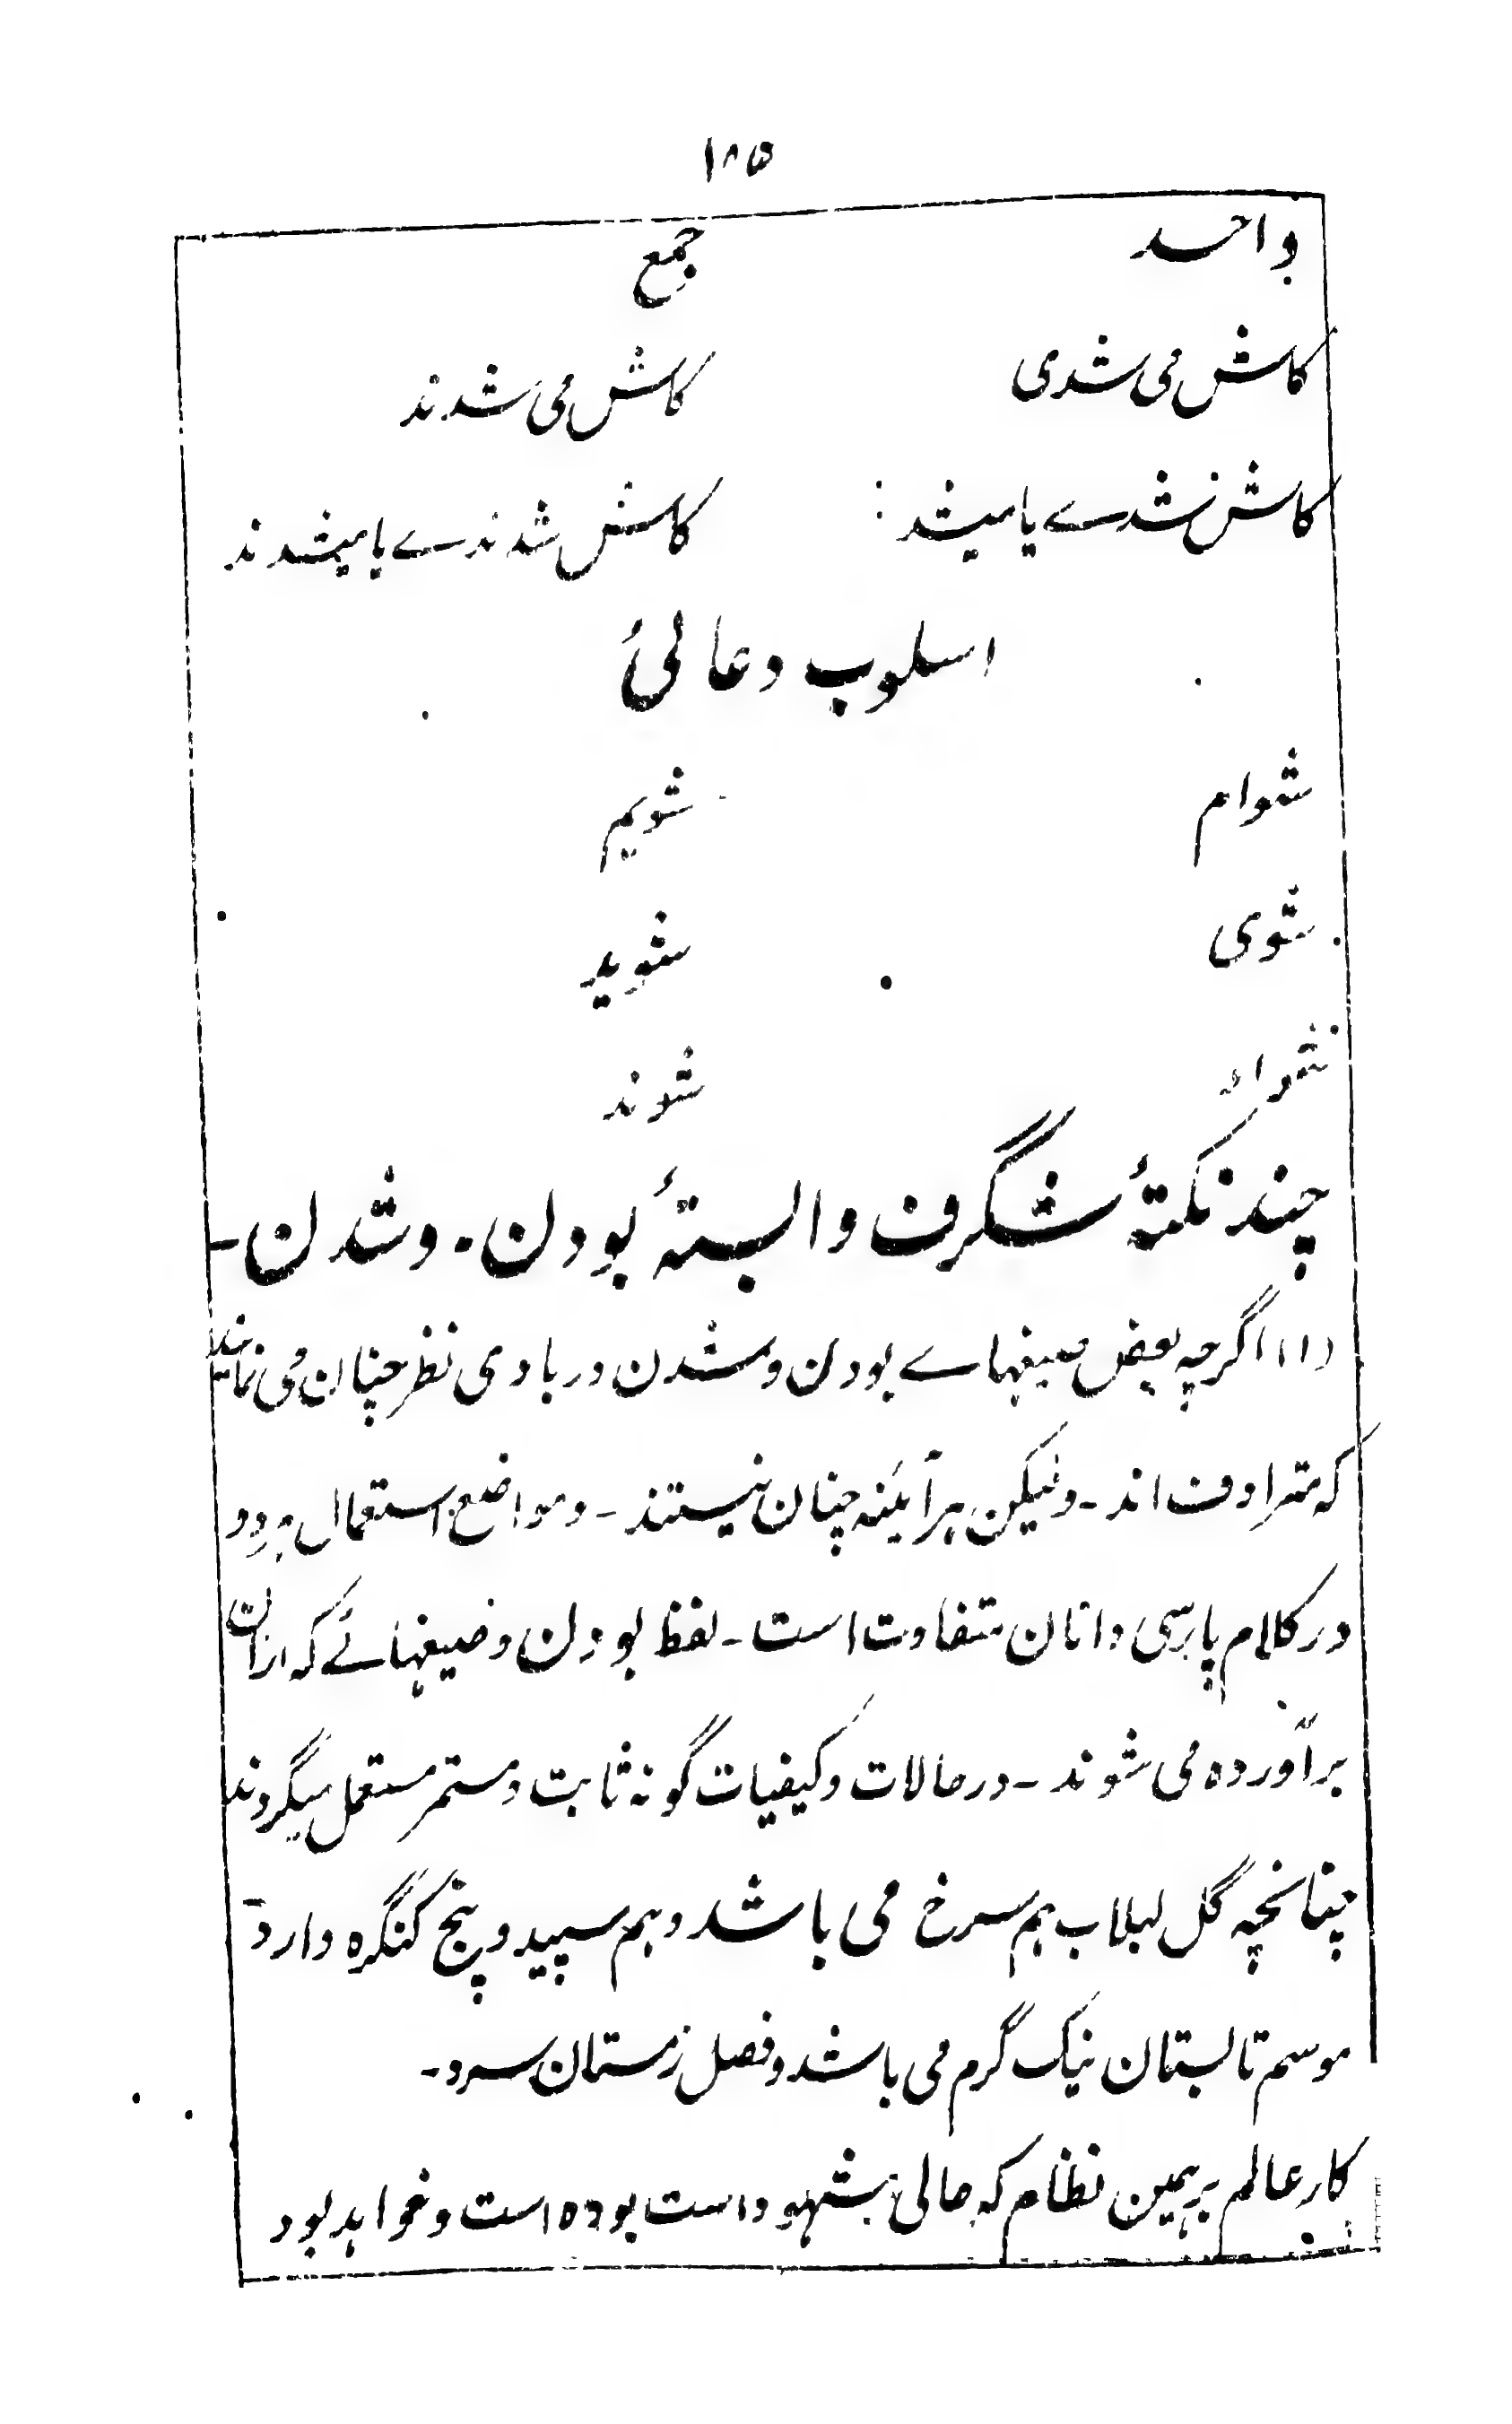 ۱۸۵
واحد جمع
کاش می شدی کاش می شدند
کاش شدے یا میشد کاش شدندے یا میشدند
اسلوب دعائی
شوام شویم
شوی شوید
شواد شوند
چند نکتۂ شگرف وابستۂ بودن۔ و شدن۔
(۱) اگرچہ بعض صیغہاے بودن و شدن در بادی نظر چنان می نمایند
کہ مترادف اند۔ ولیکن ہر آئینہ چنان نیستند۔ و مواضع استعمال ہر دو
در کلام پارسی دانان متفاوت است۔ لفظ بودن و صیغہائے کہ ازان
برآوردہ می شوند۔ در حالات و کیفیات گونہ ثابت و مستمر مستعمل میگردند
چنانچہ گل لبلاب ہم سرخ می باشد و ہم سپید و پنج کنگرہ دارد۔
موسم تابستان نیک گرم می باشد و فصل زمستان سرد۔
کار عالم بر ہمین نظام کہ حالی مشہود است بودہ است و خواہد بود